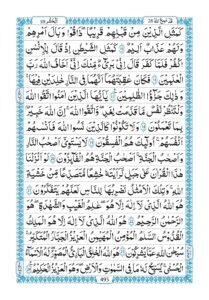 قد سمع الله ٢٨
الحشر ٥٩
كَمَثَلِ الَّذِينَ مِنْ قَبْلِهِمْ قَرِيبًا ذَاقُوا وَبَالَ أَمْرِهِمْ
وَلَهُمْ عَذَابٌ أَلِيمٌ كَمَثَلِ الشَّيْطٰنِ إِذْ قَالَ لِلْإِنْسَانِ
اكْفُرْ فَلَمَّا كَفَرَ قَالَ إِنِّي بَرِيءٌ مِنْكَ إِنِّي أَخَافُ اللّٰهَ رَبَّ
الْعٰلَمِينَ فَكَانَ عَاقِبَتَهُمَا أَنَّهُمَا فِي النَّارِ خَالِدَيْنِ فِيهَا
وَذٰلِكَ جَزَٰؤُا الظّٰلِمِينَ يٰأَيُّهَا الَّذِينَ اٰمَنُوا اتَّقُوا اللّٰهَ
وَلْتَنْظُرْ نَفْسٌ مَا قَدَّمَتْ لِغَدٍ وَاتَّقُوا اللّٰهَ إِنَّ اللّٰهَ خَبِيرٌ
بِمَا تَعْمَلُونَ وَلَا تَكُونُوا كَالَّذِينَ نَسُوا اللّٰهَ فَأَنْسٰهُمْ
أَنْفُسَهُمْ أُولٰئِكَ هُمُ الْفٰسِقُونَ لَا يَسْتَوِي أَصْحٰبُ النَّارِ
وَأَصْحٰبُ الْجَنَّةِ أَصْحٰبُ الْجَنَّةِ هُمُ الْفَائِزُونَ لَوْ أَنْزَلْنَا
هٰذَا الْقُرْاٰنَ عَلٰى جَبَلٍ لَرَأَيْتَهُ خَاشِعًا مُتَصَدِّعًا مِنْ خَشْيَةِ
اللّٰهِ وَتِلْكَ الْأَمْثَالُ نَضْرِبُهَا لِلنَّاسِ لَعَلَّهُمْ يَتَفَكَّرُونَ هُوَ
اللّٰهُ الَّذِي لَا إِلٰهَ إِلَّا هُوَ عٰلِمُ الْغَيْبِ وَالشَّهَادَةِ هُوَ
الرَّحْمٰنُ الرَّحِيمُ هُوَ اللّٰهُ الَّذِي لَا إِلٰهَ إِلَّا هُوَ الْمَلِكُ
الْقُدُّوسُ السَّلٰمُ الْمُؤْمِنُ الْمُهَيْمِنُ الْعَزِيزُ الْجَبَّارُ الْمُتَكَبِّرُ
سُبْحٰنَ اللّٰهِ عَمَّا يُشْرِكُونَ هُوَ اللّٰهُ الْخَالِقُ الْبَارِئُ الْمُصَوِّرُ لَهُ الْأَسْمَاءُ
الْحُسْنٰى يُسَبِّحُ لَهُ مَا فِي السَّمٰوٰتِ وَالْأَرْضِ وَهُوَ الْعَزِيزُ الْحَكِيمُ
493